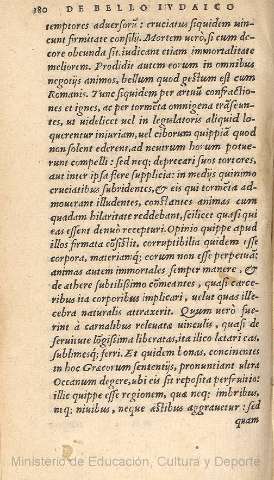 380 DE BELLO IVDAICO
temptores aduersorũ: cruciatus siquidem uin-
cunt firmitate consilij. Mortem uerò, si cum de-
core obeunda sit, iudicant etiam immortalitate
meliorem. Prodidit autem eorum in omnibus
negotijs animos, bellum quod gestum est cum
Romanis. Tunc siquidem per artuũ confractio-
nes et ignes, ac per tormẽta omnigena trãseun-
tes, ut uidelicet uel in legislatoris aliquid lo-
querentur iniuriam, uel ciborum quippiã quod
non solent ederent, ad neutrum horum potue-
runt compelli: sed neq; deprecari suos tortores,
aut inter ipsa flere supplicia: in medijs quinimo
cruciatibus subridentes, & eis qui tormẽta ad-
mouerant illudentes, constãtes animas cum
quadam hilaritate reddebant, scilicet quasi qui
eas essent denuò recepturi. Opinio quippe apud
illos firmata cõsistit, corruptibilia quidem esse
corpora, materiamq; eorum non esse perpetuã:
animas autem immortales semper manere, &
de æthere subtilissimo cõmeantes, quasi carce-
ribus ita corporibus implicari, uelut quas ille-
cebra naturalis attraxerit. Quum uerò fue-
rint à carnalibus releuatæ uinculis, quasi de
seruitute lõgissima liberatas, ita ilico lætari eas,
sublimesq; ferri. Et quidem bonas, concinentes
in hoc Græcorum sententijs, pronuntiant ultra
Oceanum degere, ubi eis sit reposita perfruitio:
illic quippe esse regionem, quæ neq; imbribus,
neq; niuibus, neque æstibus aggrauetur: sed
quam
Ministerio de Educación, Cultura y Deporte